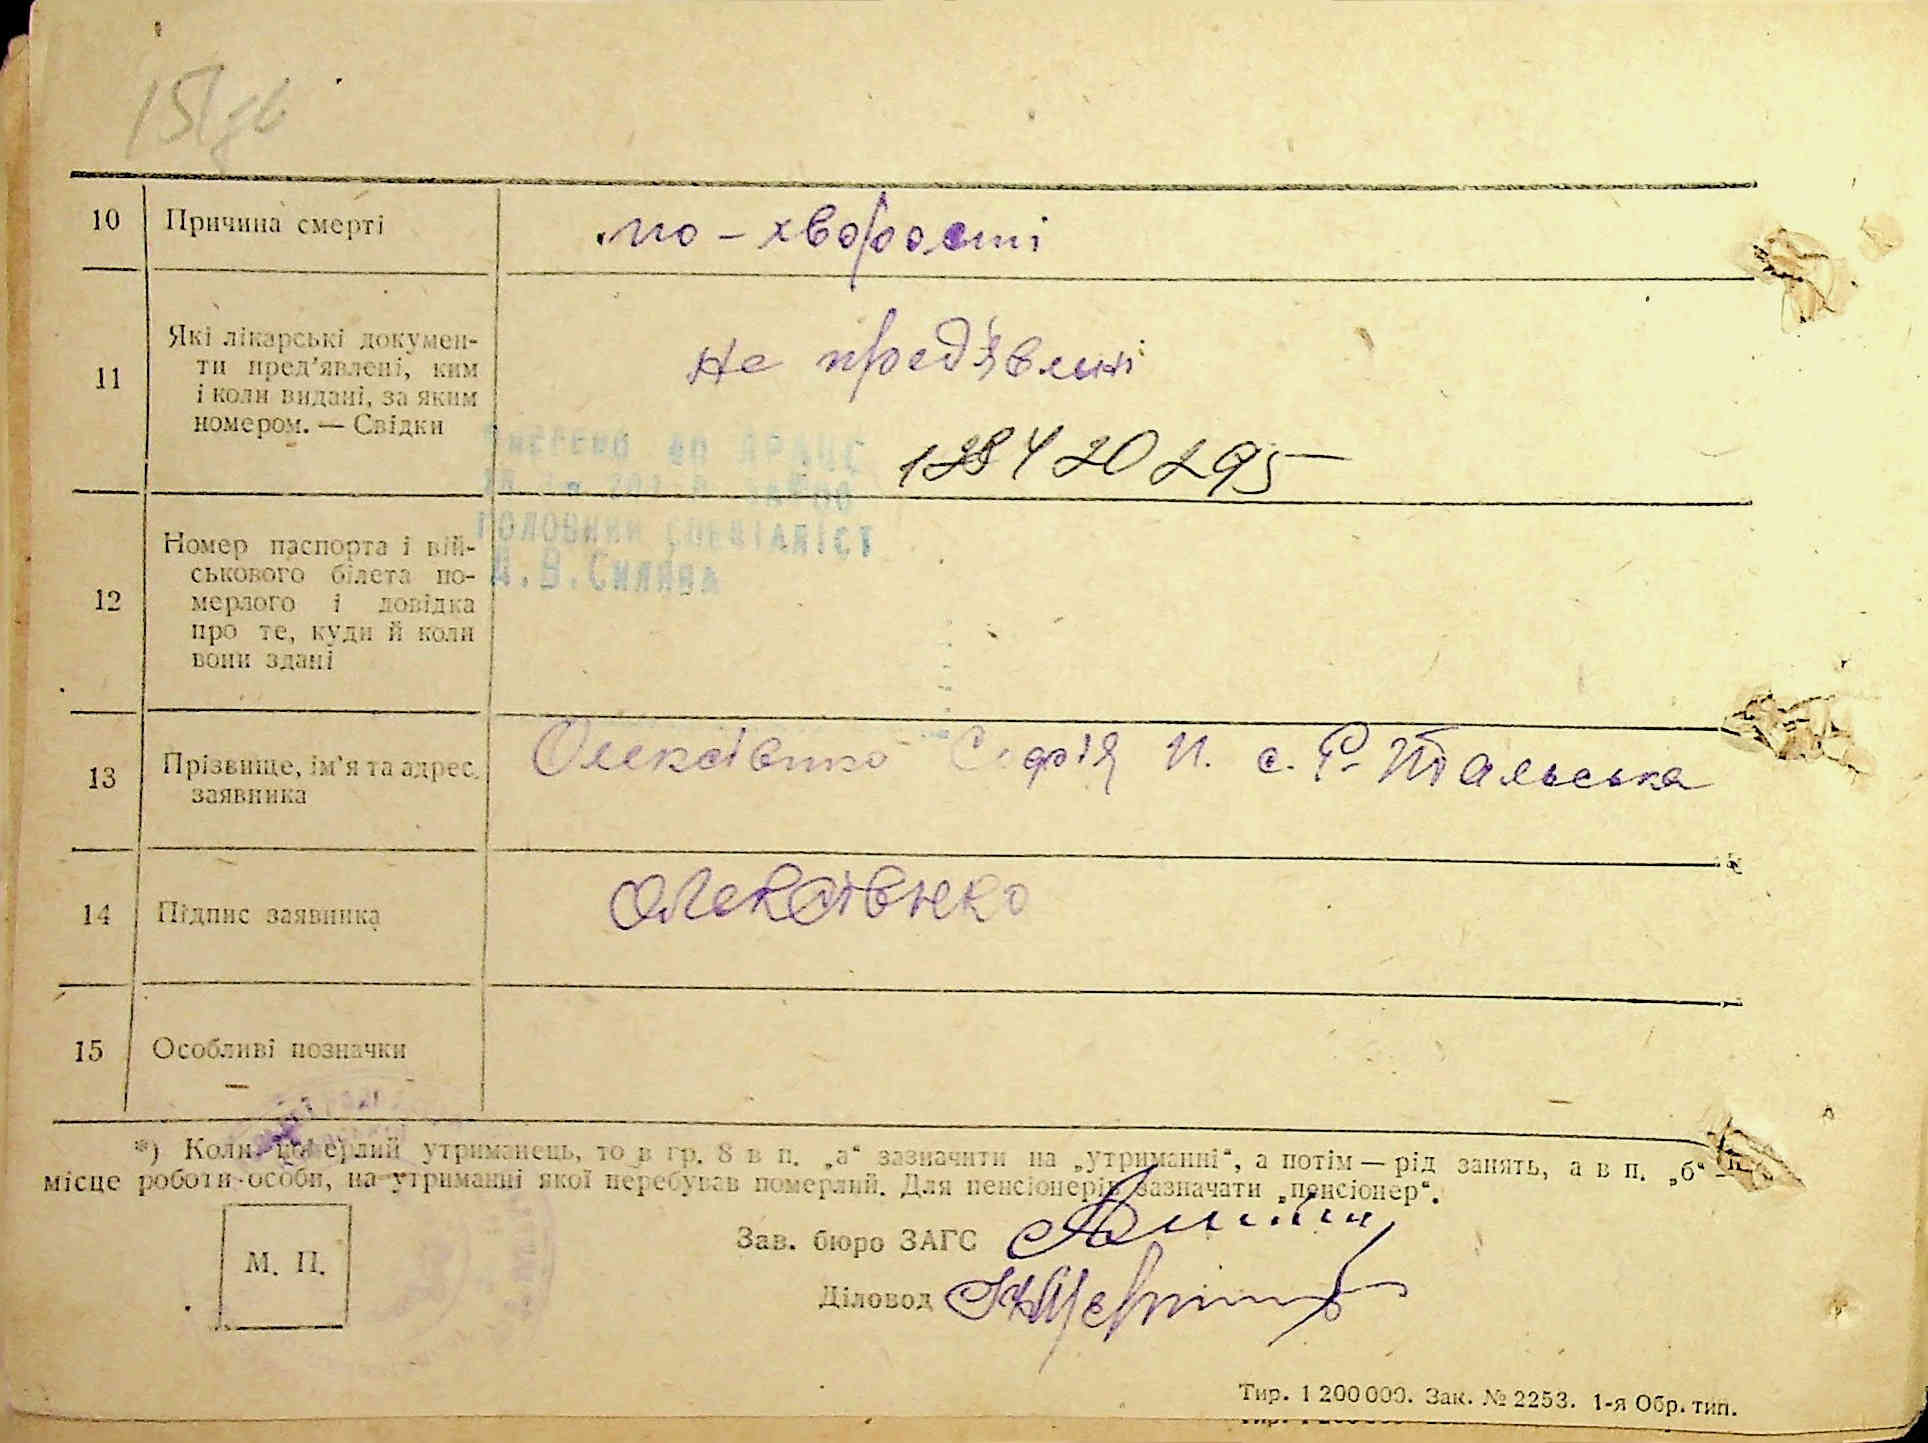 10 Причина смерті по-хворості
11 Які лікарські докумен-
ти пред'явлені, ким
і коли видані, за яким
номером. — Свідки
не пред'явлені
128420295
Внесено до ДРАЦС
головний спеціаліст
12 Номер паспорта і вій-
ськового білета по-
мерлого і довідка
про те, куди й коли
вони здані
13 Прізвище, ім'я та адрес.
заявника
Олексієнко Софія И. с. Р-Тальська
14 Підпис заявника Олексієнко
15 Особливі позначки
*) Коли померлий утриманець, то в гр. 8 в п. „а“ зазначити на „утриманні“, а потім — рід занять, а в п. „б“ —
місце роботи особи, на утриманні якої перебував померлий. Для пенсіонерів зазначати „пенсіонер“.
М. П.
Зав. бюро ЗАГС
Діловод
Тир. 1 200 000. Зак. № 2253. 1-я Обр. тип.